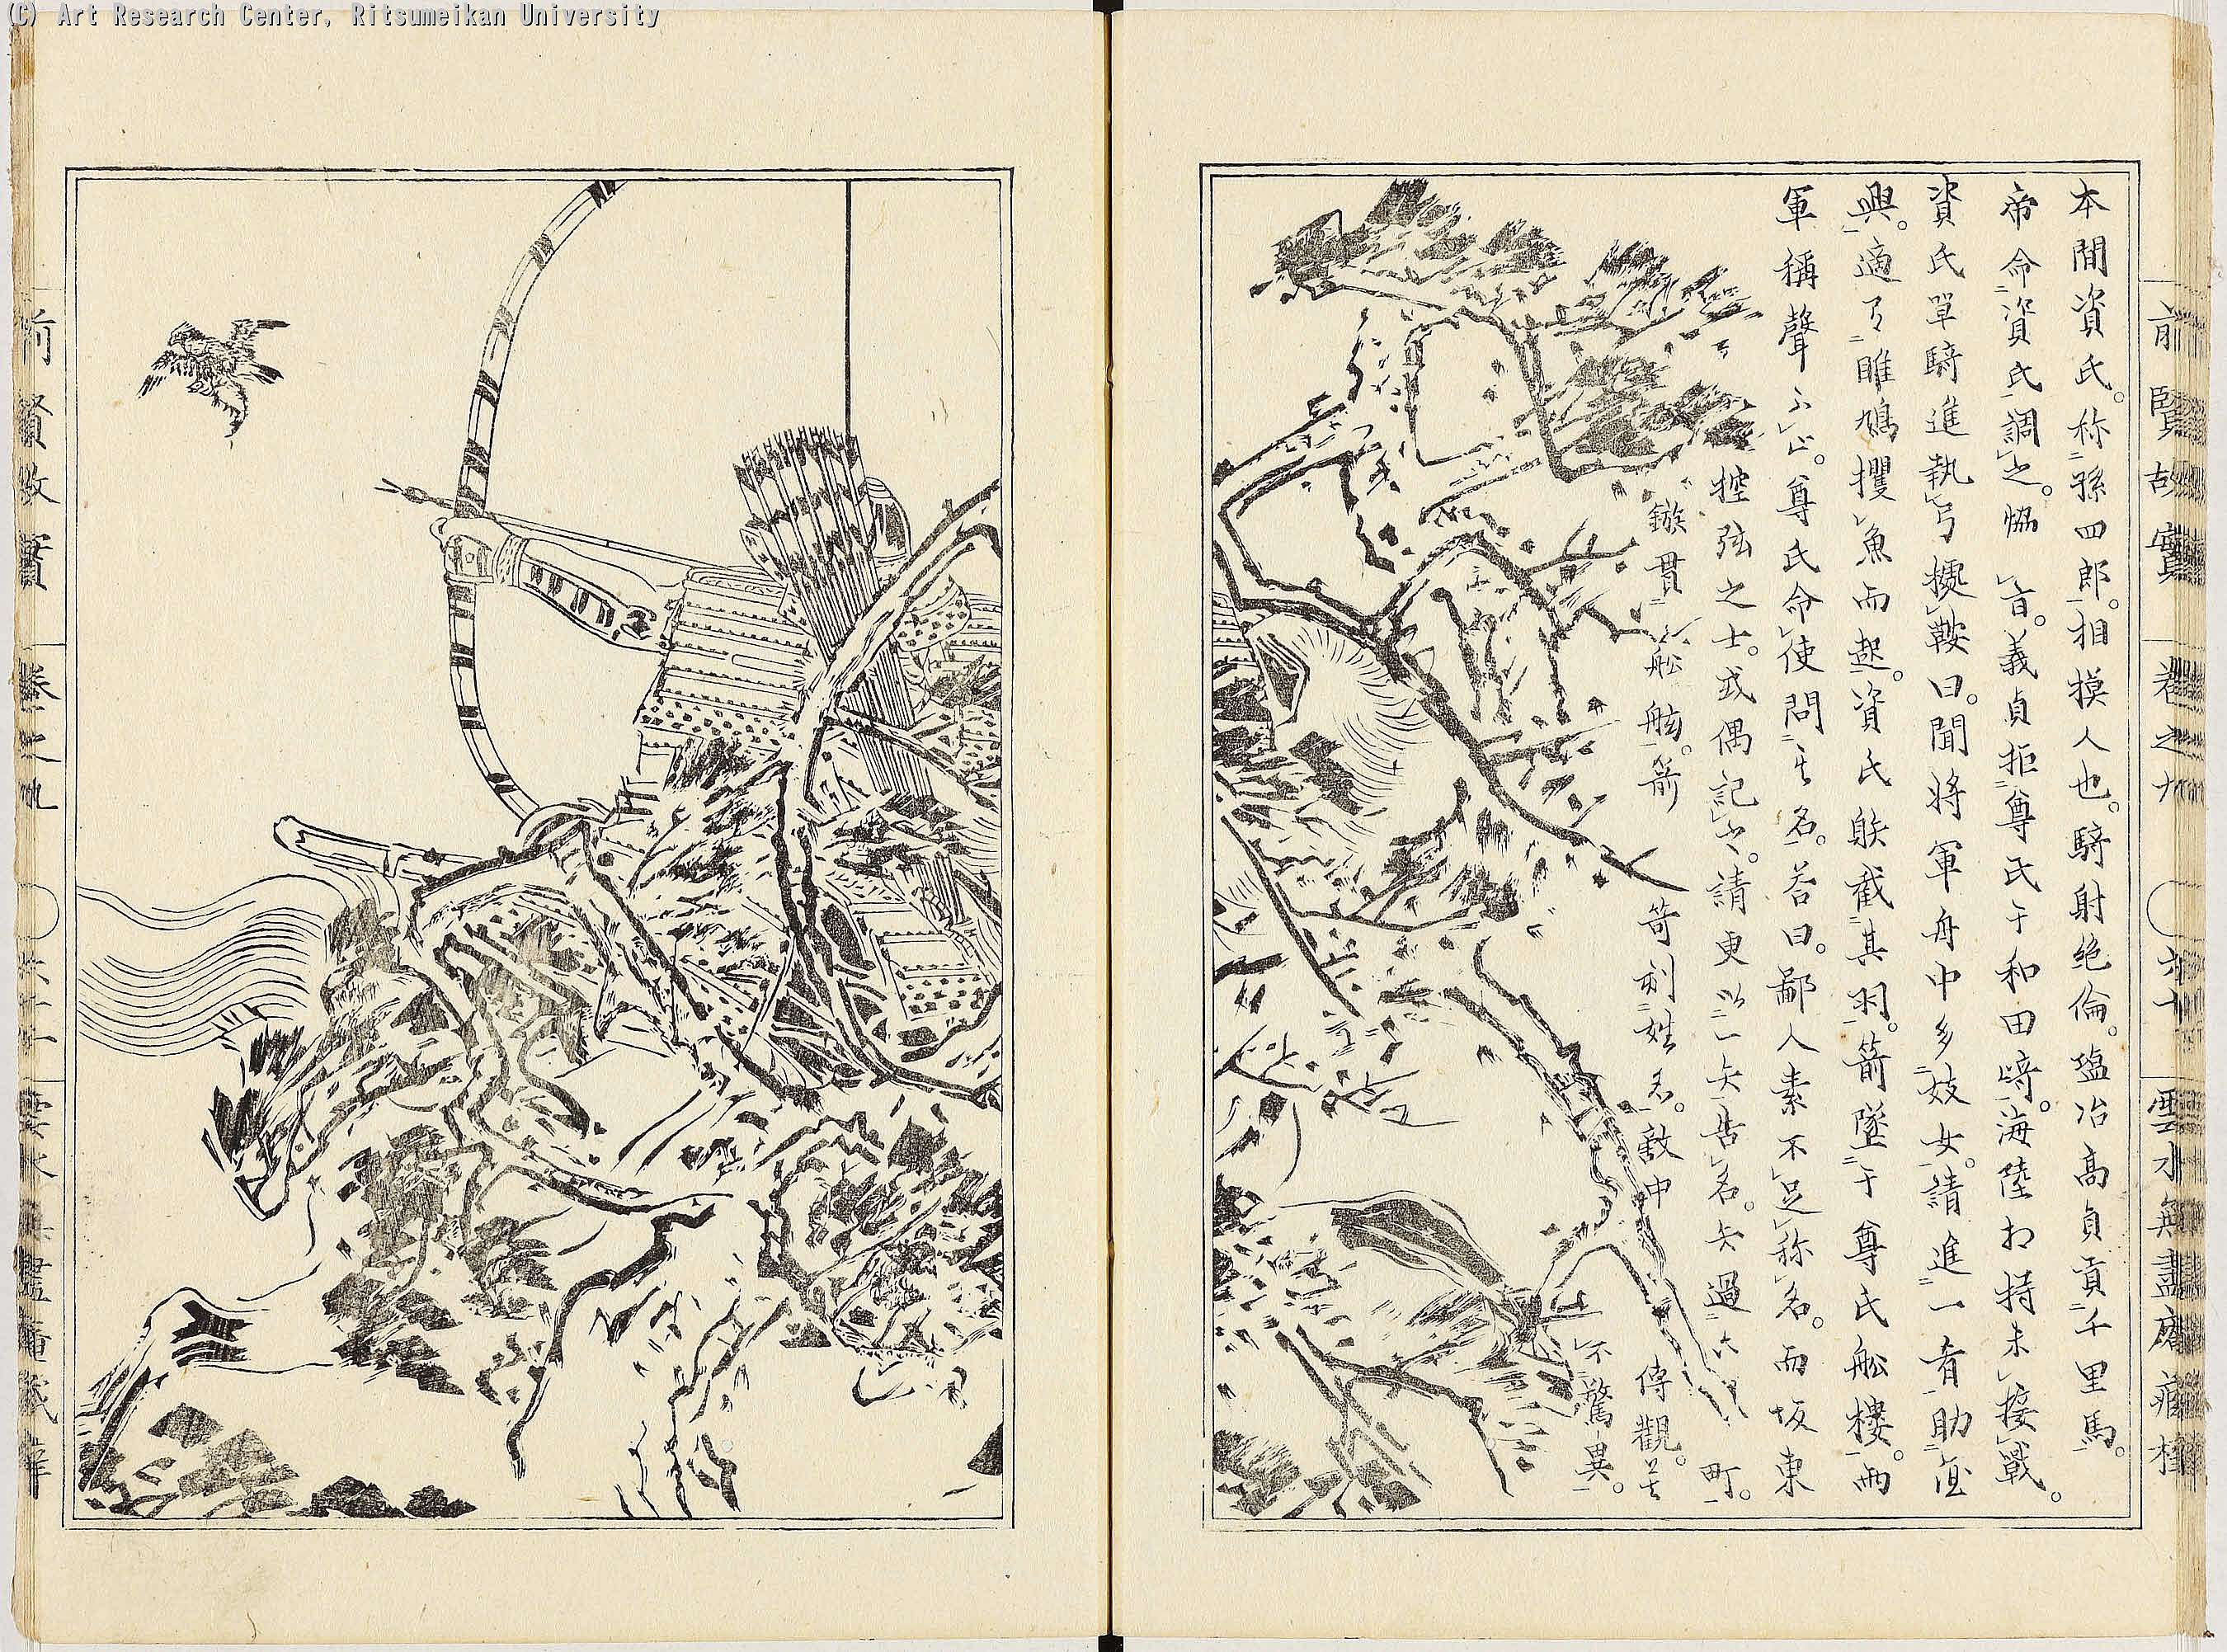 (C) Art Research Center, Ritsumeikan University
前賢故實 卷之九 六十 雲水無盡庵藏梓
本間資氏。称孫四郎。相摸人也。騎射絶倫。塩冶高貞貢千里馬。
帝命資氏調之。恊旨。義貞拒尊氏于和田﨑。海陸相持未接戰。
資氏單騎進執弓據鞍曰。聞將軍舟中多妓女。請進一肴助
興。適有雎鳩攫魚而起。資氏射截其羽。箭墜于尊氏船樓。兩
軍稱聲不止。尊氏命使問其名。答曰。鄙人素不足称名。而坂東
控弦之士。或偶記之。請更以一矢告名。矢過六町。
鏃貫舩舷。箭笴刻姓名。敵中傳觀。莫
不驚異。
前賢故實 卷之九 雲水無盡庵藏梓